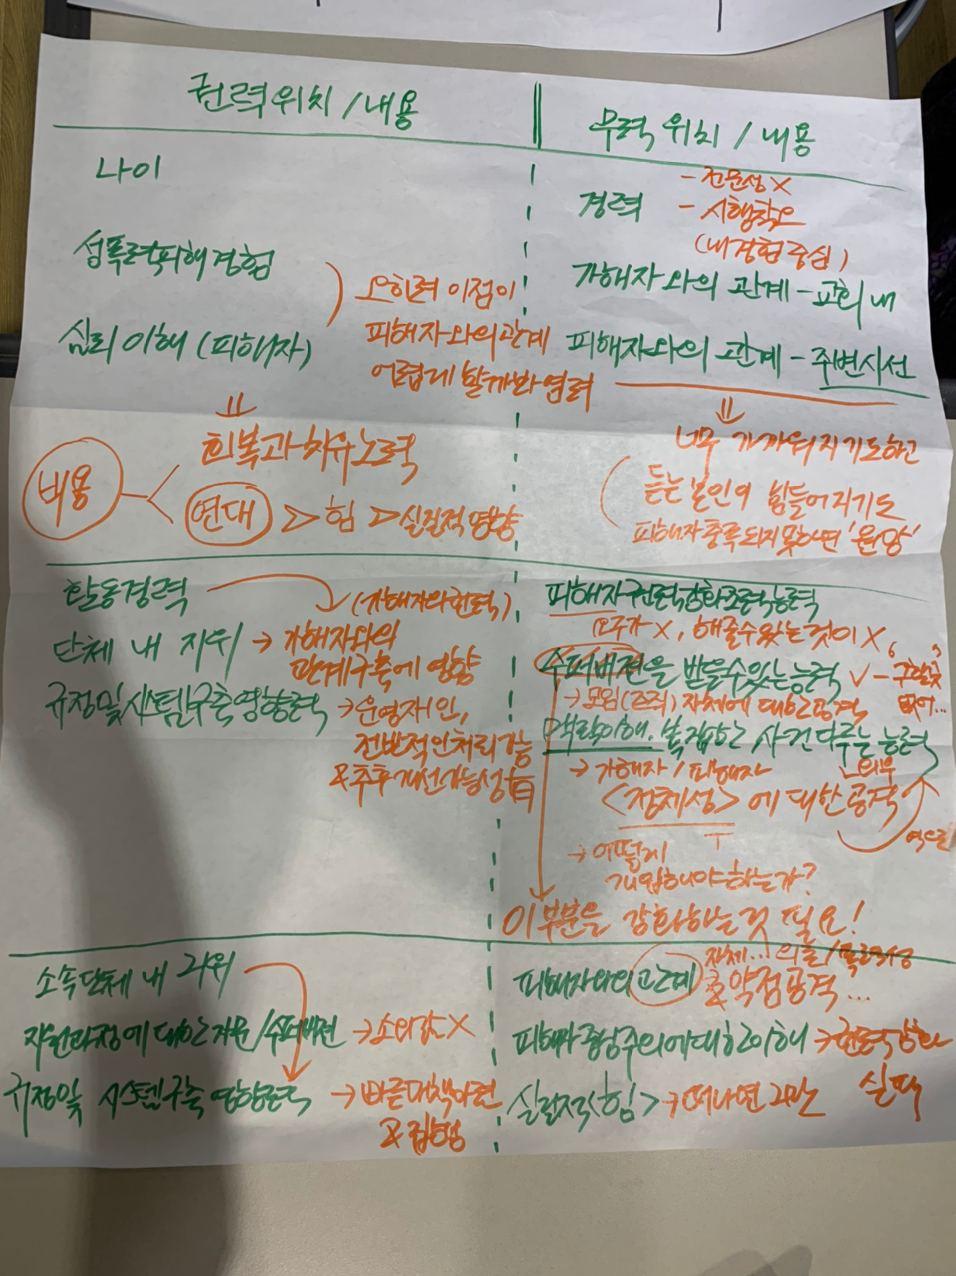 권력위치 / 내용
무력 위치 / 내용
나이
경력
- 전문성 X
- 시행착오
(내 경험 중심)
성폭력피해경험
가해자와의 관계 - 교회 내
심리 이해 (피해자)
피해자와의 관계 - 주변시선
오히려 이점이
피해자와의 관계
어렵게 할까봐 염려
⇓
회복과 치유 노력
비용
연대 > 힘 > 실질적 영향
⇓
너무 가까워지기도하고
듣는 본인의 힘들어지기도
피해자 충족되지 못하면 '원망'
활동경력
(가해자와 권력)
단체 내 지위 → 가해자와의
관계구축에 영향
규정및시스템구축영향력 → 운영재인,
전반적인 처리가능
& 추후 개선가능성 有
피해자권력강화조력능력
요구가 X, 해줄수있는것이 X
수퍼비전을 받을수있는능력 ✓ -
없어...
→ 모임(조직) 자체에 대한 공격
맥락이해, 복잡한 사건 다루는 능력
→ 가해자 / 피해자
<정체성>에 대한 공격
→ 어떻게
개입해야하는가?
이 부분을 강화하는것 필요!
소속단체 내 지위
자원과정에 대한 자문/수퍼비전 → 소외감 X
규정및 시스템구축 영향력 → 빠른대책마련
& 집행
피해자와의 관계
자체...
약점공격...
피해자중심주의에대한이해 → 권력강화
실패
실질적<힘> → 떠나면 그만